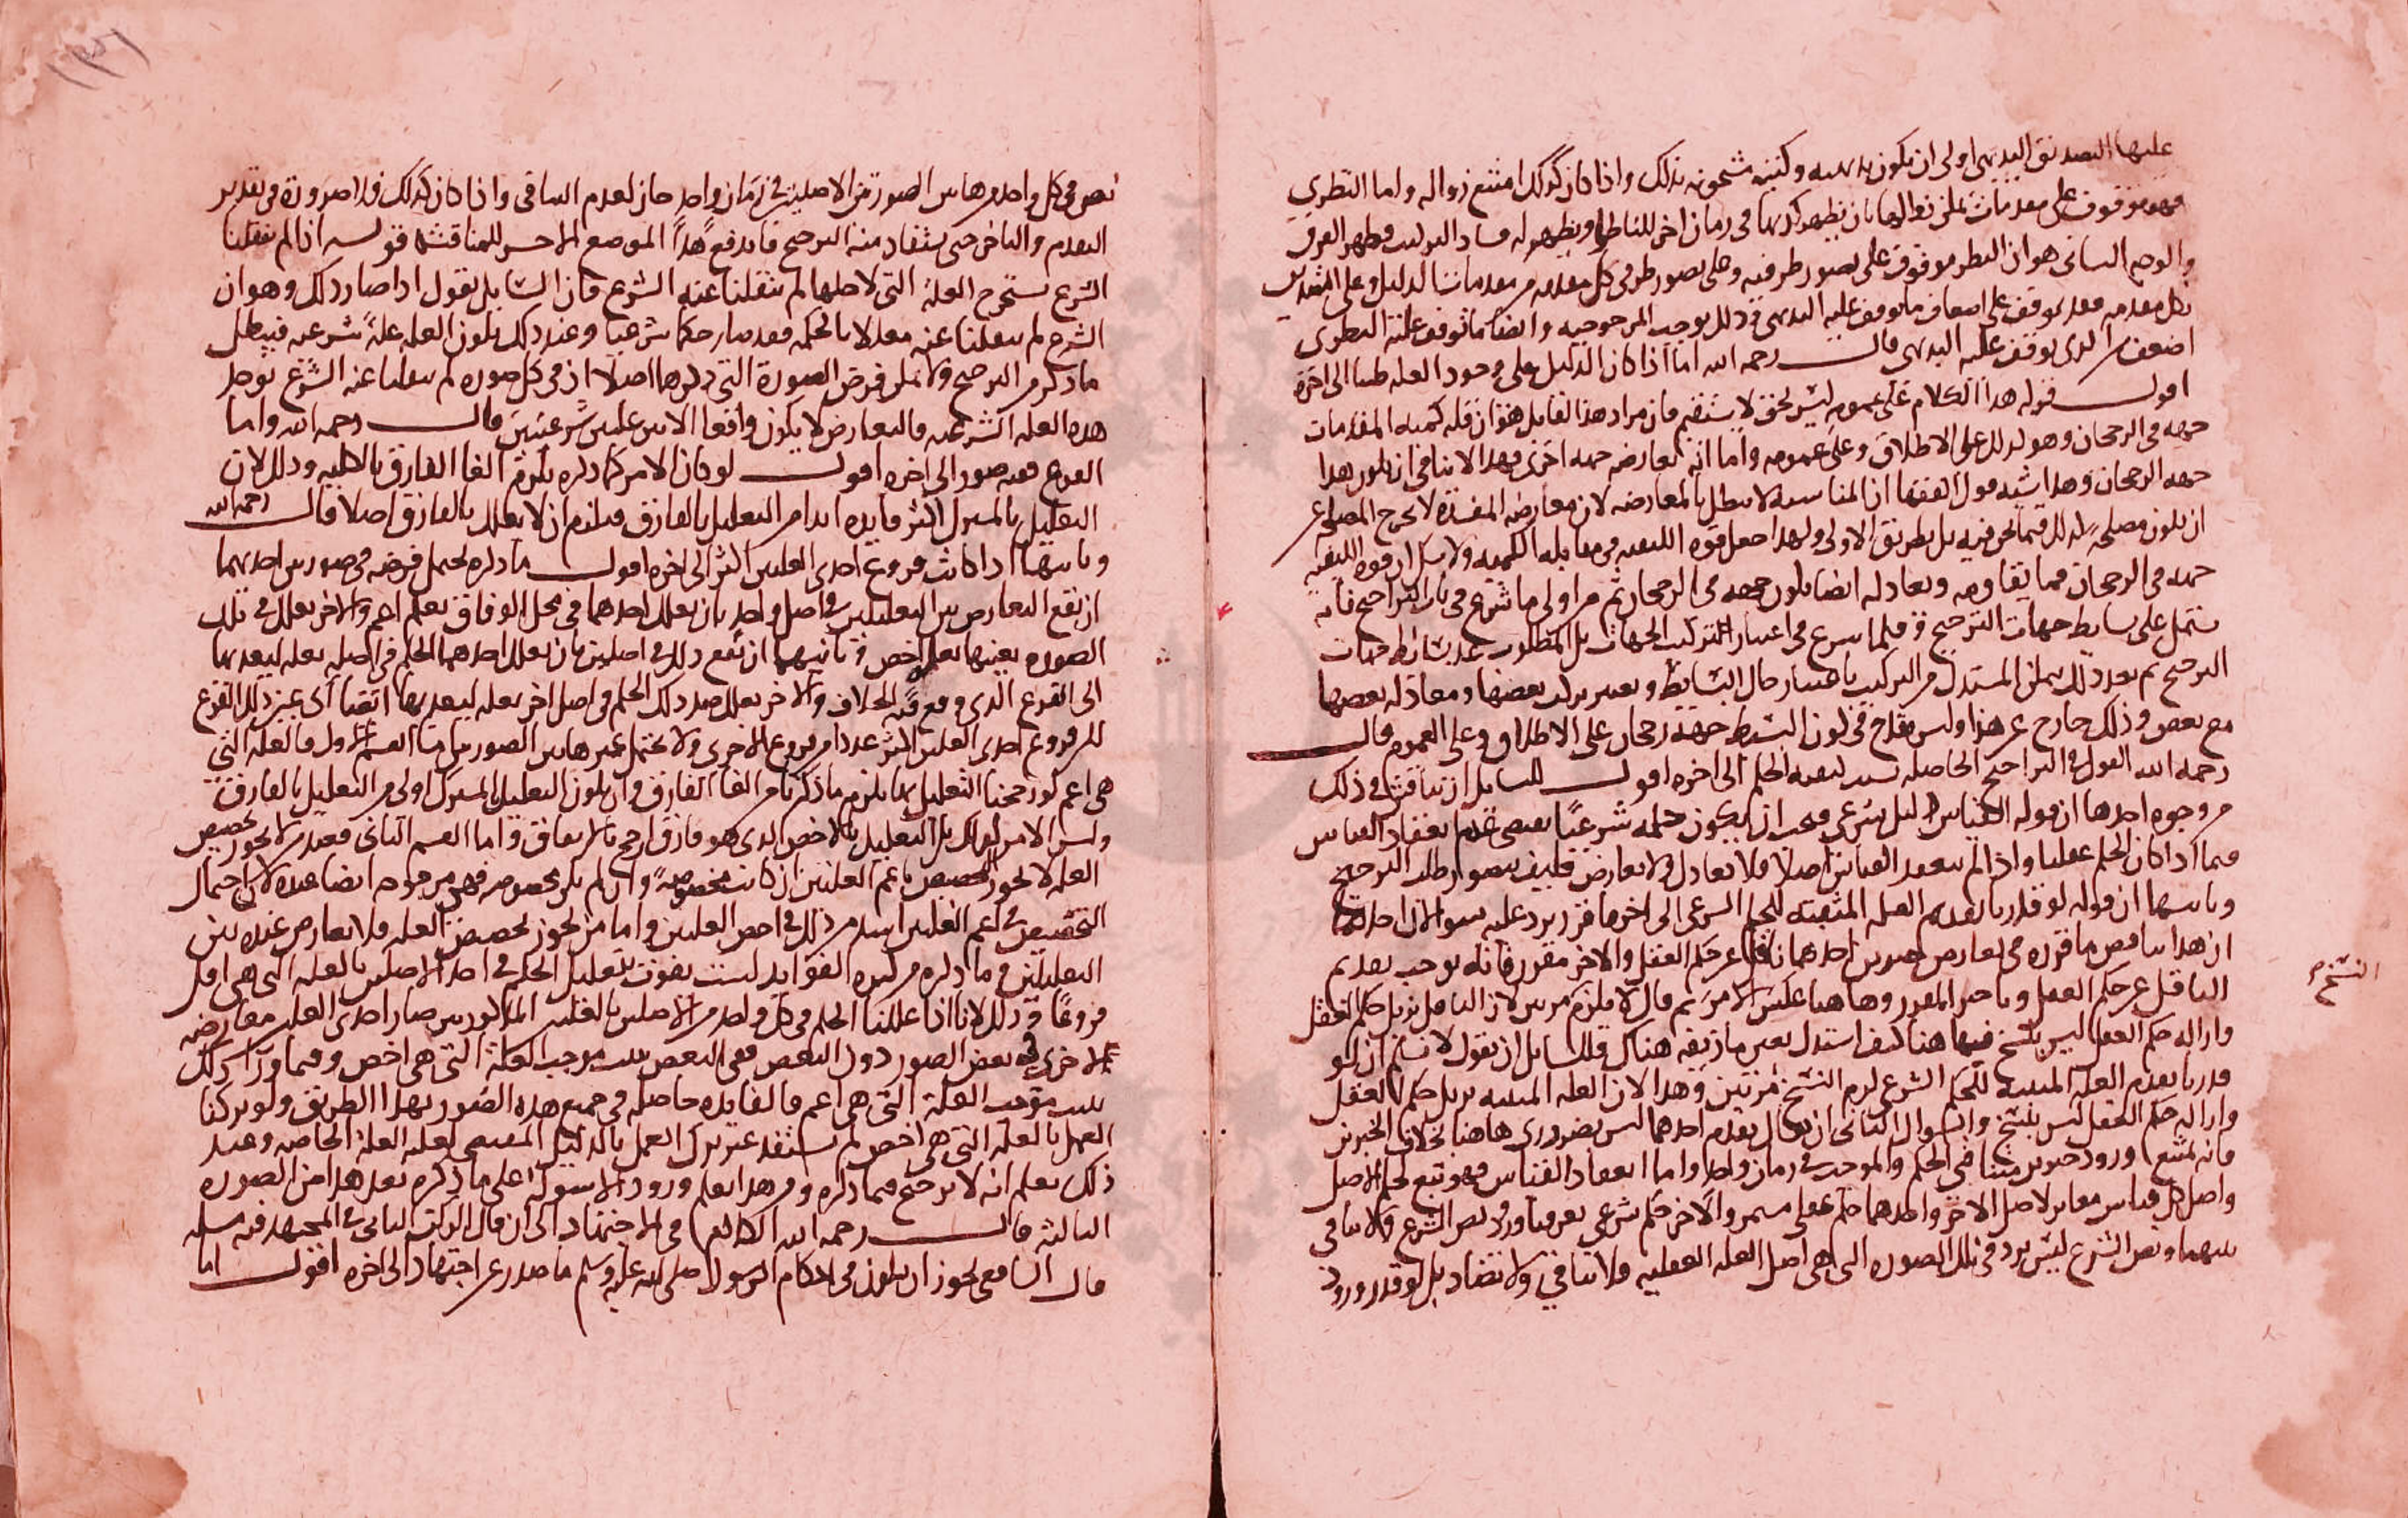 عليها التصديق البديهي اولى ان يكون بديهيه وكتبه مشحونه بذلك واذا كان كذلك امتنع زواله واما النظري
فهو موقوف على مقدمات يمكن زوالها بان يظهر كذبها في زمان اخر للناظر او يظهر له فساد التركيب فظهر الفرق
والوجه الثاني هو ان النظر موقوف على تصور طرفيه وعلى تصور طرفي كل مقدمه من مقدمات الدليل وعلى التصديق
بكل مقدمه فقد توقف على اضعاف ما توقف عليه البديهي وذلك يوجب المرجوحيه وايضا ما توقف عليه النظري
اضعف من الذي توقف عليه البديهي قال رحمه الله اما اذا كان الدليل على وجود العله ظنيا الى اخره
اقول قوله هذا الكلام على عمومه ليس بحق لا يستقيم فان مراد هذا القايل هو ان قله كميه المقدمات
جهه في الرجحان وهو كذلك على الاطلاق وعلى عمومه واما انه تعارضه جهه اخرى فهذا لا ينافي ان يكون هذا
جهه الرجحان وهذا يشبه قول الفقها ان المناسبه لا تبطل بالمعارضه لان معارضه المفسده لا تخرج المصلحه عن
ان تكون مصلحه كذلك فيما نحن فيه بل بطريق الاولى ولهذا جعل قوه الكيفيه في مقابله الكميه ولا شك ان قوه الكيفيه
جهه في الرجحان فما يقاومه ويعادله ايضا يكون جهه في الرجحان ثم من اولى ما شرع في باب التراجيح فانه
يشتمل على بسايط جهات الترجيح وقلما شرع في اعتبار التركيب الجهات بل المطلوب عد بسائط جهات
الترجيح ثم بعد ذلك يمكن المستدل من التركيب باعتبار حال البسايط ويعتبر تركب بعضها ومعادله بعضها
مع بعض وذلك خارج عن هذا وليس بقادح في كون البسيط جهه رجحان على الاطلاق وعلى العموم قال
رحمه الله القول في التراجيح الحاصله بسبب كيفيه الحكم الى اخره اقول للسايل ان يناقش في ذلك
من وجوه احدها ان قوله القياس دليل شرعي فيجب ان يكون حكمه شرعيا يقتضي عدم انعقاد القياس
فيما اذا كان الحكم عقليا واذا لم ينعقد القياس اصلا فلا تعادل ولا تعارض فكيف يتصور طلب الترجيح
وثانيها ان قوله لو قدرنا تقديم العله المثبته للحكم الشرعي الى اخر ما قرر يرد عليه سوالان احدهما
ان هذا يناقض ما قرره في تعارض خبرين احدهما ناقل عن حكم العقل والاخر مقرر فانه يوجب تقديم
الناقل عن حكم العقل وتاخير المقرر وها هنا عكس الامر ثم قال لا يلزم مرتين لان الناقل يزيل حكم العقل
النسخ
وازاله حكم العقل ليس بنسخ فيها هنا كيف استدل بعين ما زيفه هناك فللسايل ان يقول لا نسلم ان لو
قدرنا تقديم العله المثبته للحكم الشرعي لزم النسخ مرتين وهذا لان العله المثبته تزيل حكم العقل
وازاله حكم العقل ليس بنسخ والسوال الثاني ان يقال تقديم احدهما ليس بضروري ها هنا بخلاف الخبرين
فانه يمتنع ورود خبرين متنافي الحكم والموجب في زمان واحد واما انعقاد القياس فهو تبع لحكم الاصل
واصل كل قياس مغاير لاصل الاخر واحدهما حكم عقلي مستمر والاخر حكم شرعي تعرفنا ورود نص الشرع ولا تنافي
بينهما ونص الشرع ليس يرد في تلك الصوره التي هي اصل العله العقليه فلا تنافي ولا تضاد بل لو قدر ورود
نص في كل واحد من هاتين الصورتين الاصليتين في زمان واحد جاز لعدم التنافي واذا كان كذلك فلا ضرورة في تقدير
التقدم والتاخر حتى يستفاد منه الترجيح فاندفع هذا الموضع الاخير للمناقشه قوله اذا لم ينقلنا
الشرع نستخرج العلة التي لاجلها لم ينقلنا عنه الشرع فان السايل يقول اذا صار ذلك وهو ان
الشرع لم ينقلنا عنه معللا بالحكمه فقد صار حكما شرعيا وعند ذلك يكون العله علة شرعيه فيبطل
ما ذكر من الترجيح ولا يمكن فرض الصورة التي ذكرها اصلا اذ في كل صوره لم ينقلنا عنه الشرع توجد
هذه العله الشرعيه فالتعارض لا يكون واقعا الا بين علتين شرعيتين قال رحمه الله واما
الفروع ففيه صور الى اخره اقول لو كان الامر كما ذكره يلزم الغا الفارق بالكليه وذلك لان
التعليل بالمشترك اكثر فايده ابدا من التعليل بالفارق فيلزم ان لا يعلل بالفارق اصلا قال رحمه الله
وثانيها اذا كانت فروع احدى العلتين اكثر الى اخره اقول ما ذكره يحتمل فرضه في صورتين احديهما
ان يقع التعارض بين التعليلين في اصل واحد بان يعلل احدهما في محل الوفاق بعله اعم والاخر يعلل في تلك
الصوره بعينها بعله اخص وثانيهما ان يقع ذلك في اصلين بان يعلل احدهما الحكم في اصله بعله ليعديها
الى الفرع الذي وقع فيه الخلاف والاخر يعلل ضد ذلك الحكم في اصل اخر بعله ليعديها ايضا الى عين ذلك الفرع
لكن فروع احدى العلتين اكثر عددا من فروع الاخرى ولا يحتمل غير هاتين الصورتين اما القسم الاول فالعله التي
هي اعم لو رجحنا التعليل بها يلزم ما ذكرنا من الغا الفارق وان يكون التعليل بالمشترك اولى من التعليل بالفارق
وليس الامر كذلك بل التعليل بالاخص الذي هو فارق ارجح بالاتفاق واما القسم الثاني فعند من لا يجوز تخصيص
العله لا يجوز التخصيص باعم العلتين ان كانت مخصوصة وان لم تكن مخصوصه فهي مرجوحه ايضا عنده لان احتمال
التخصيص في اعم العلتين اشد من ذلك في اخص العلتين واما من يجوز تخصيص العله فلا تعارض عنده بين
التعليلين وما ذكره من كثره الفوايد ليست تفوت بتعليل الحكم في احد الاصلين بالعله التي هي اقل
فروعا وذلك لانا اذا عللنا الحكم في كل واحد من الاصلين بالعلتين المذكورتين صار احدى العلتين معارضه
للاخرى في بعض الصور دون البعض ففي البعض يثبت موجب العلة التي هي اخص وفيما ورا ذلك
يثبت موجب العلة التي هي اعم فالفايده حاصله في جميع هذه الصور بهذا الطريق ولو تركنا
العمل بالعله التي هي اخص لم نستفد غير ترك العمل بالدليل المقتضي لعله العلة الخاصه وعند
ذلك يعلم انه لا ترجيح فيما ذكره ومن هذا يعلم ورود الاسوله على ما ذكره بعد هذا من الصوره
الثالثه قال رحمه الله الكلام في الاجتهاد الى ان قال الركن الثاني في المجتهد فيه مسله
قال الشافعي يجوز ان يكون في احكام الرسول صلى الله عليه وسلم ما صدر عن اجتهاد الى اخره اقول اما